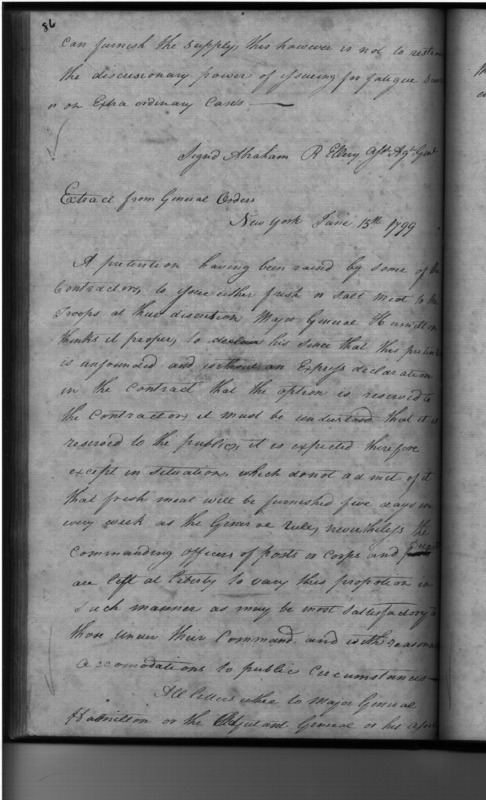 86
can furnish the supply, this however is not to
the discresionary power of issueing for fatigue
or on Extra ordinary Cases —
Signd Abraham R Ellery Asst. Agt. Genl.
Extract from General Orders
New York June 15th 1799
A pretention having been raised by some of the
Contractors, to issue either fresh or salt meat to the
Troops at their discretion, Major General Hamilton
thinks it proper, to declare his sence that this
is unfounded and without an Express declaration
in the Contract that the option is reserved to
the Contractors, it must be understood that it is
reserved to the public, it is expected therefore
except in situations, which do not admit of it
that fresh meat will be furnished five days in
every week as the General rule, nevertheless the
commanding officers of posts or corps and
are left at liberty to vary this propotion in
such manner as may be most satisfactory to
those under their Command, and with
accomodations to public Circumstances —
All letters either to Major General
Hamilton or the Adjutant General or his